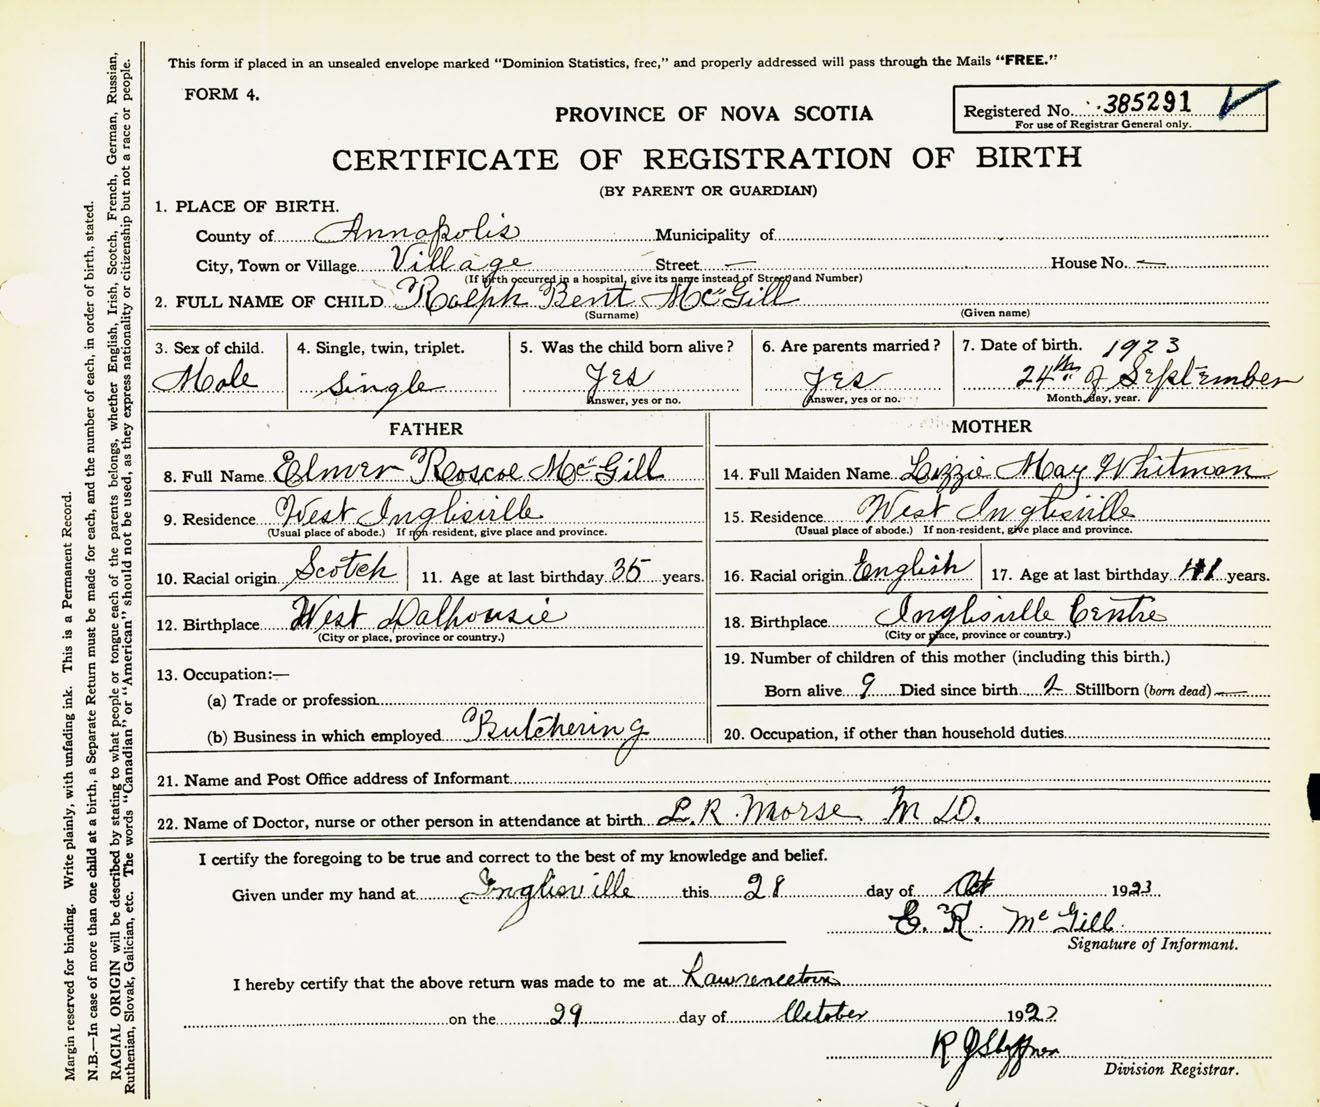 This form if placed in an unsealed envelope marked "Dominion Statistics, free," and properly addressed will pass through the Mails "FREE."
FORM 4.
Registered No. 385291
For use of Registrar General only.
PROVINCE OF NOVA SCOTIA
CERTIFICATE OF REGISTRATION OF BIRTH
(BY PARENT OR GUARDIAN)
1. PLACE OF BIRTH.
County of Annapolis Municipality of
City, Town or Village Village Street — House No. —
(If birth occurred in a hospital, give its name instead of Street and Number)
2. FULL NAME OF CHILD Ralph Bent McGill
(Surname) (Given name)
3. Sex of child. 4. Single, twin, triplet. 5. Was the child born alive? 6. Are parents married? 7. Date of birth. 1923
Male Single Yes Yes 24th of September
Answer, yes or no. Answer, yes or no. Month, day, year.
FATHER MOTHER
8. Full Name Elmer Roscoe McGill
9. Residence West Inglisville
(Usual place of abode.) If non-resident, give place and province.
10. Racial origin Scotch 11. Age at last birthday 35 years.
12. Birthplace West Dalhousie
(City or place, province or country.)
13. Occupation:—
(a) Trade or profession
(b) Business in which employed Butchering
14. Full Maiden Name Lizzie May Whitman
15. Residence West Inglisville
(Usual place of abode.) If non-resident, give place and province.
16. Racial origin English 17. Age at last birthday 41 years.
18. Birthplace Inglisville Centre
(City or place, province or country.)
19. Number of children of this mother (including this birth.)
Born alive 9 Died since birth 2 Stillborn (born dead) —
20. Occupation, if other than household duties
21. Name and Post Office address of Informant
22. Name of Doctor, nurse or other person in attendance at birth L. R. Morse M D.
I certify the foregoing to be true and correct to the best of my knowledge and belief.
Given under my hand at Inglisville this 28 day of Oct 1923
E. R. McGill
Signature of Informant.
I hereby certify that the above return was made to me at Lawrencetown
on the 29 day of October 192
R J Shaffner
Division Registrar.
Margin reserved for binding. Write plainly, with unfading ink. This is a Permanent Record.
N.B.—In case of more than one child at a birth, a Separate Return must be made for each, and the number of each, in order of birth, stated.
RACIAL ORIGIN will be described by stating to what people or tongue each of the parents belongs, whether English, Irish, Scotch, French, German, Russian,
Ruthenian, Slovak, Galician, etc. The words "Canadian" or "American" should not be used, as they express nationality or citizenship but not a race or people.